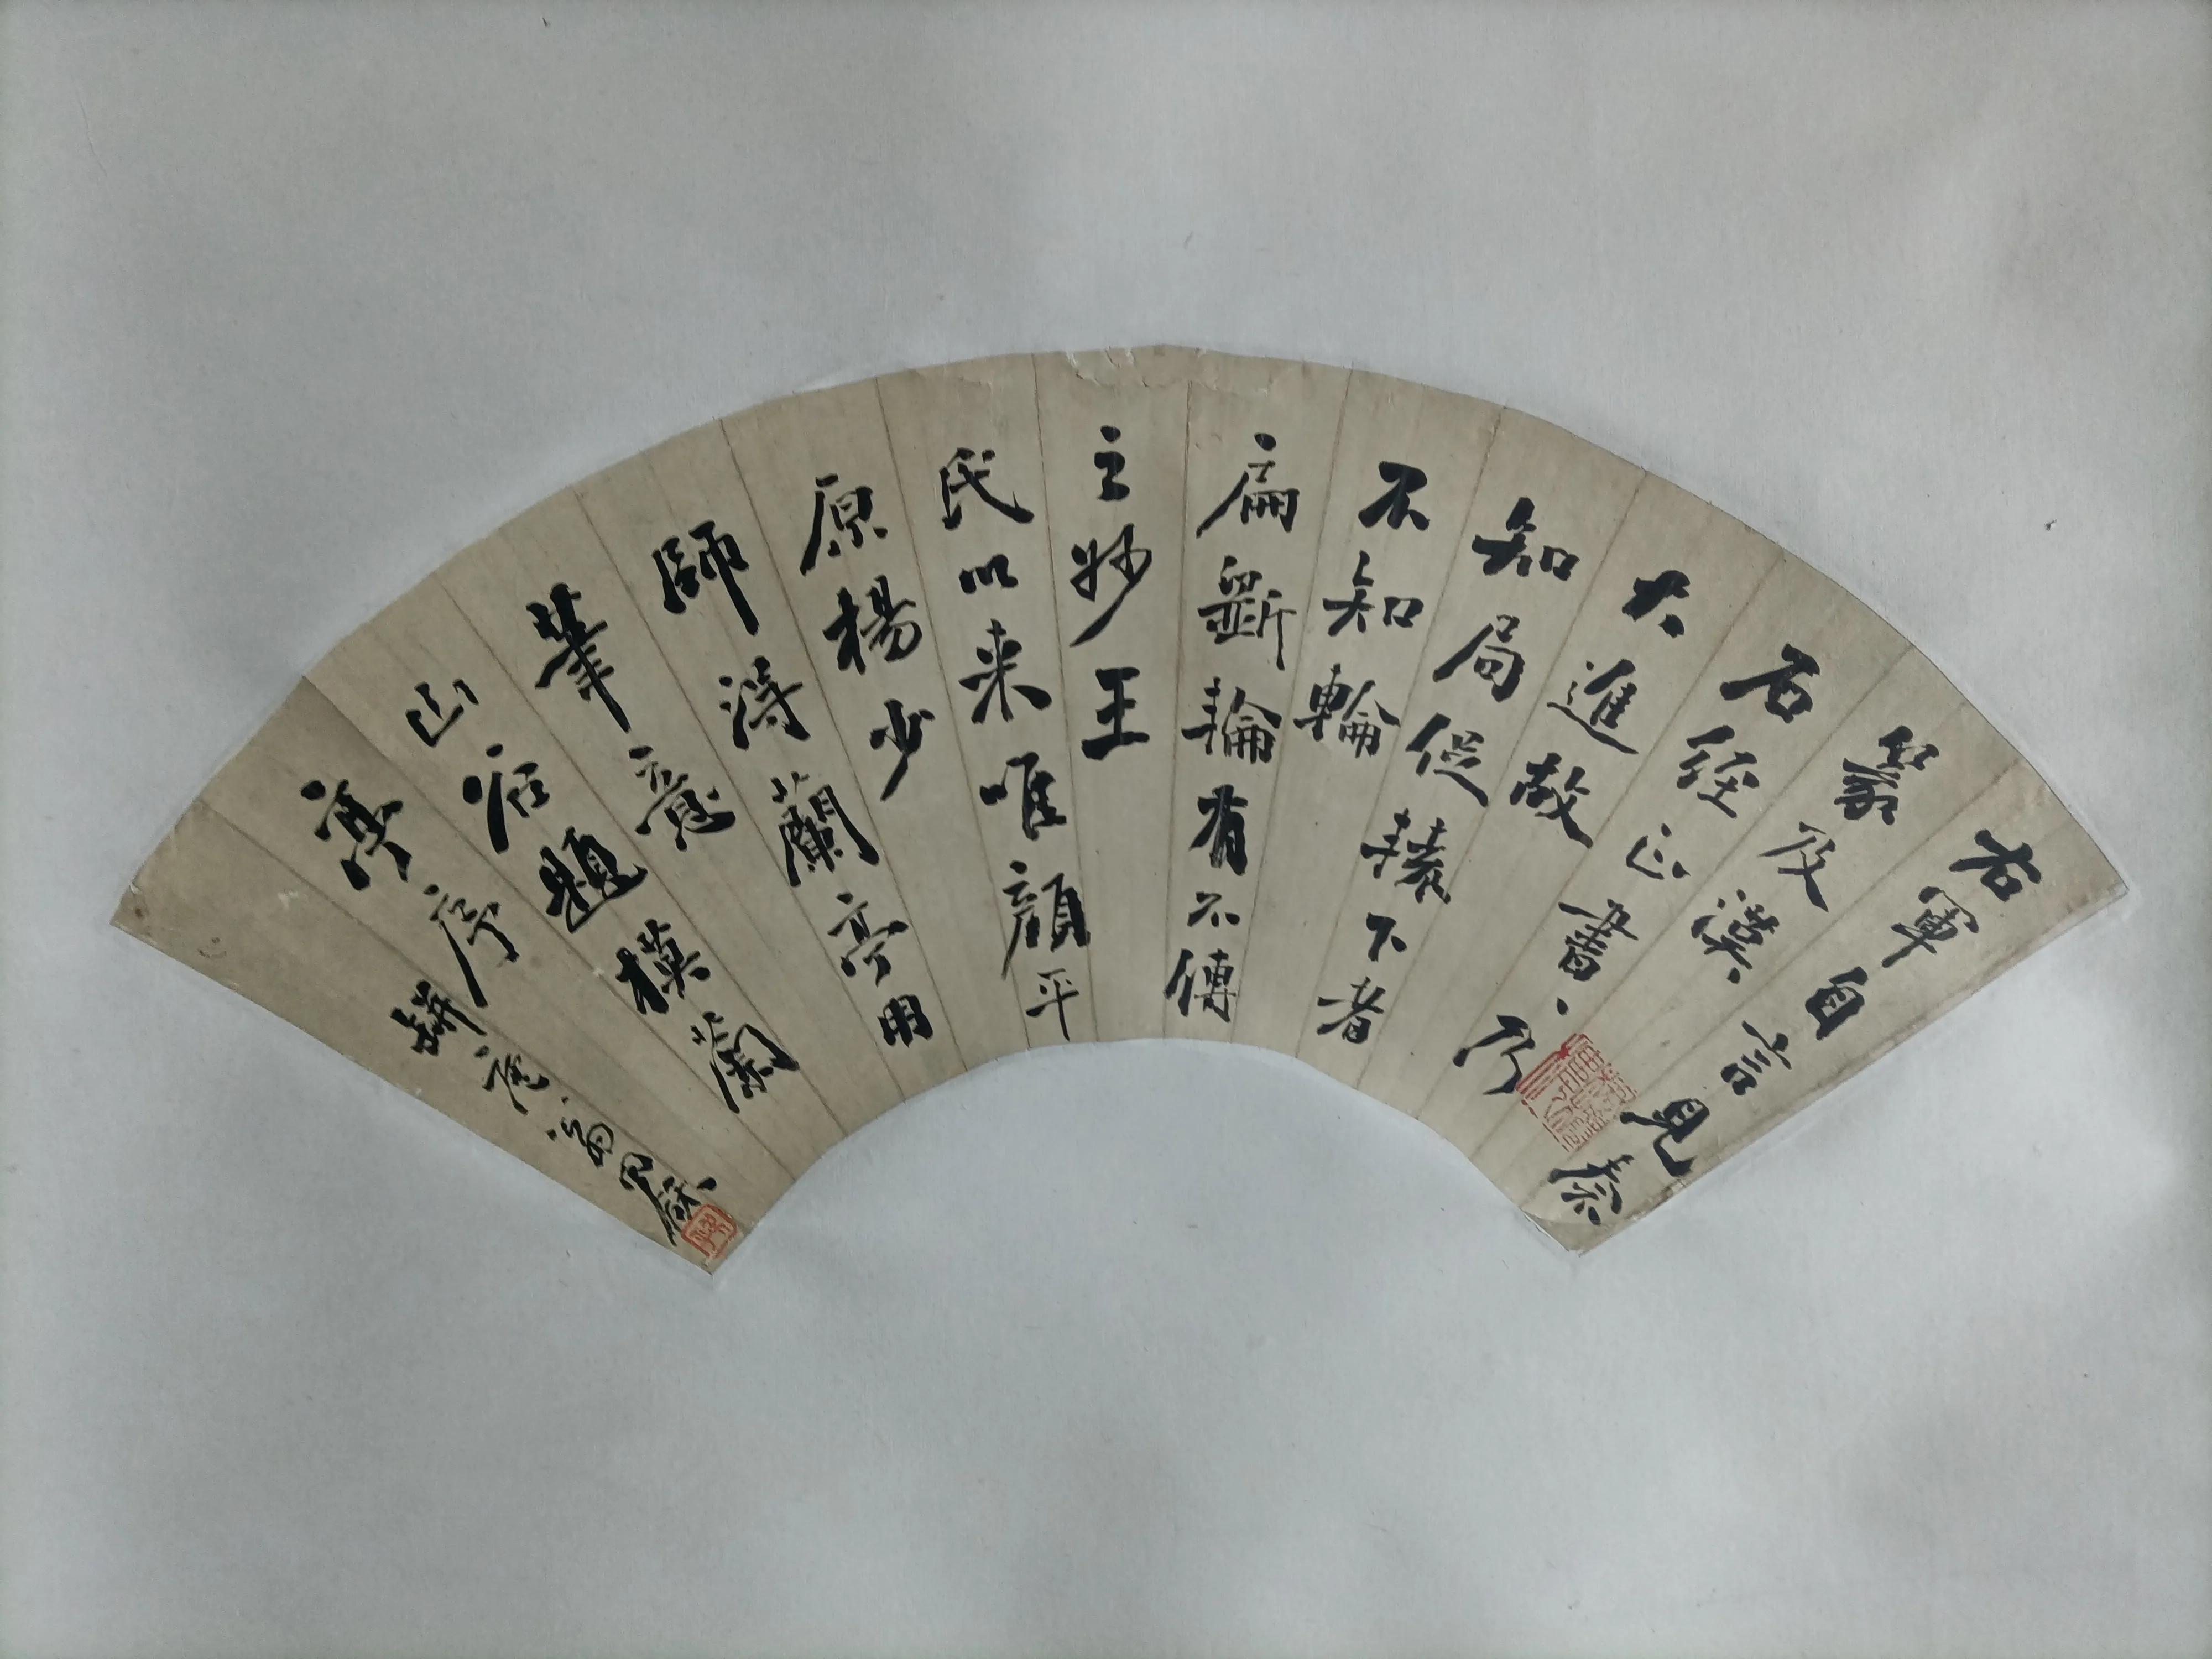 右軍自言見秦
篆及漢
石經正書〻乃
大進故
知局促轅下者
不知輪
扁斲輪有不傳
之妙王
氏以来唯顔平
原楊少
師得蘭亭用
筆意
山谷題模蘭
亭序